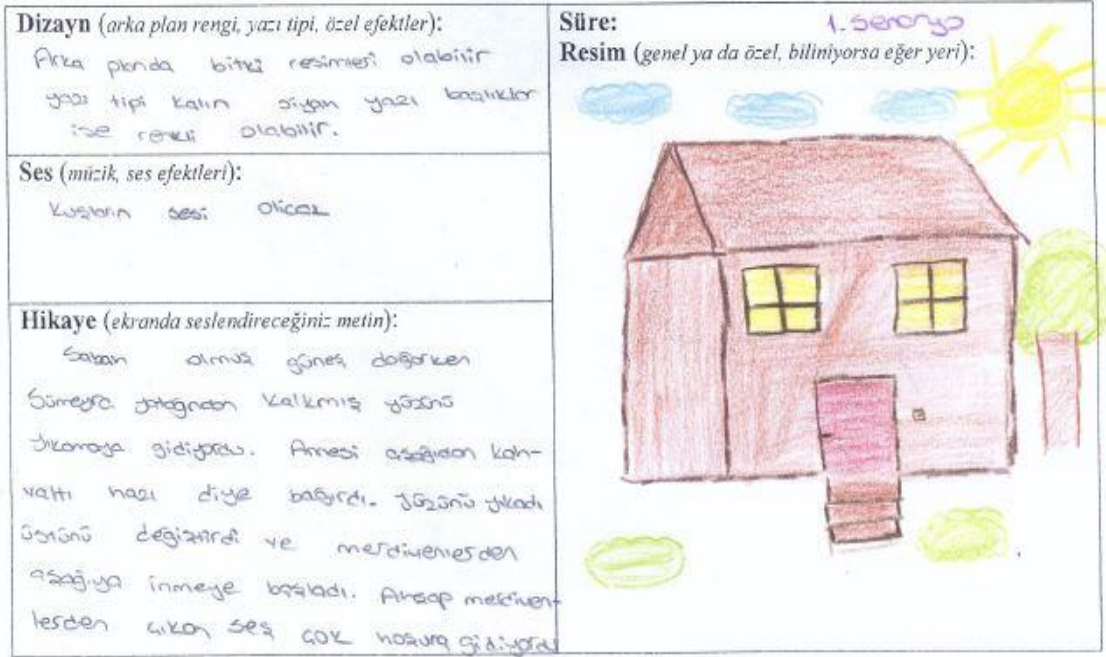 Dizayn (arka plan rengi, yazı tipi, özel efektler):
Arka planda bitki resimleri olabilir
yazı tipi kalın siyah yazı başlıklar
ise renkli olabilir.
Ses (müzik, ses efektleri):
Kuşların sesi olicak
Hikaye (ekranda seslendireceğiniz metin):
Sabah olmuş güneş doğarken
Sümeyra yatağından kalkmış yüzünü
yıkamaya gidiyordu. Annesi aşağıdan kah-
valtı hazı diye bağırdı. Yüzünü yıkadı
üstünü değiştirdi ve merdivenlerden
aşağıya inmeye başladı. Ahşap merdiven-
lerden çıkan ses çok hoşuna gidiyordu
Süre: 1. Senaryo
Resim (genel ya da özel, biliniyorsa eğer yeri):